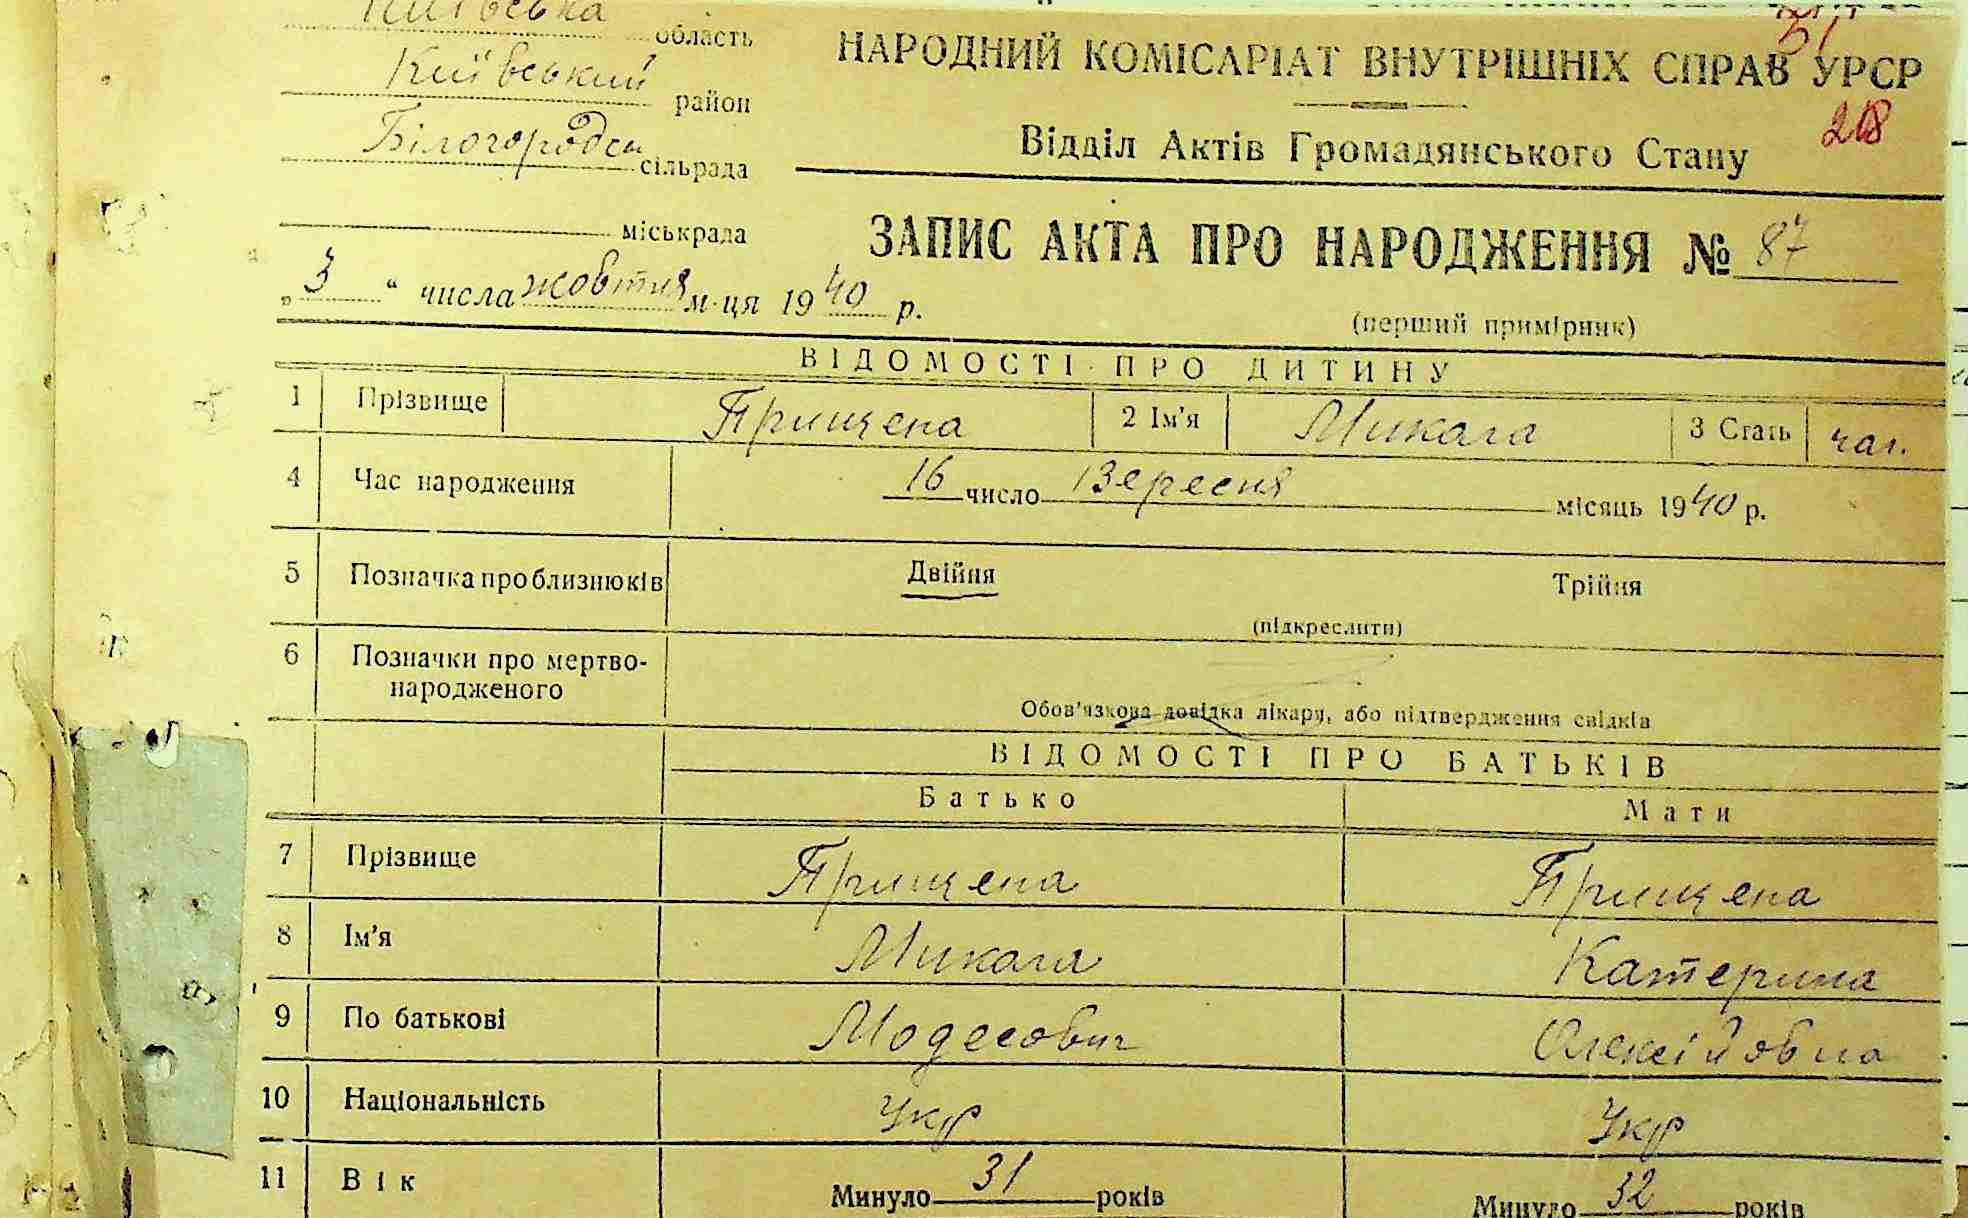 Київська область
Київський район
Білогородська сільрада
міськрада
НАРОДНИЙ КОМІСАРІАТ ВНУТРІШНІХ СПРАВ УРСР
51
218
Відділ Актів Громадянського Стану
ЗАПИС АКТА ПРО НАРОДЖЕННЯ № 87
„3“ числа жовтня м-ця 1940 р.
(перший примірник)
ВІДОМОСТІ ПРО ДИТИНУ
1 Прізвище Прищепа 2 Ім'я Микола 3 Стать чол.
4 Час народження 16 число Вересня місяць 1940 р.
5 Позначка про близнюків Двійня Трійня
(підкреслити)
6 Позначки про мертво-
народженого
Обов'язкова довідка лікаря, або підтвердження свідків
ВІДОМОСТІ ПРО БАТЬКІВ
Батько Мати
7 Прізвище Прищепа Прищепа
8 Ім'я Микола Катерина
9 По батькові Модесович Олексійовна
10 Національність Укр Укр
11 Вік Минуло 31 років Минуло 32 років